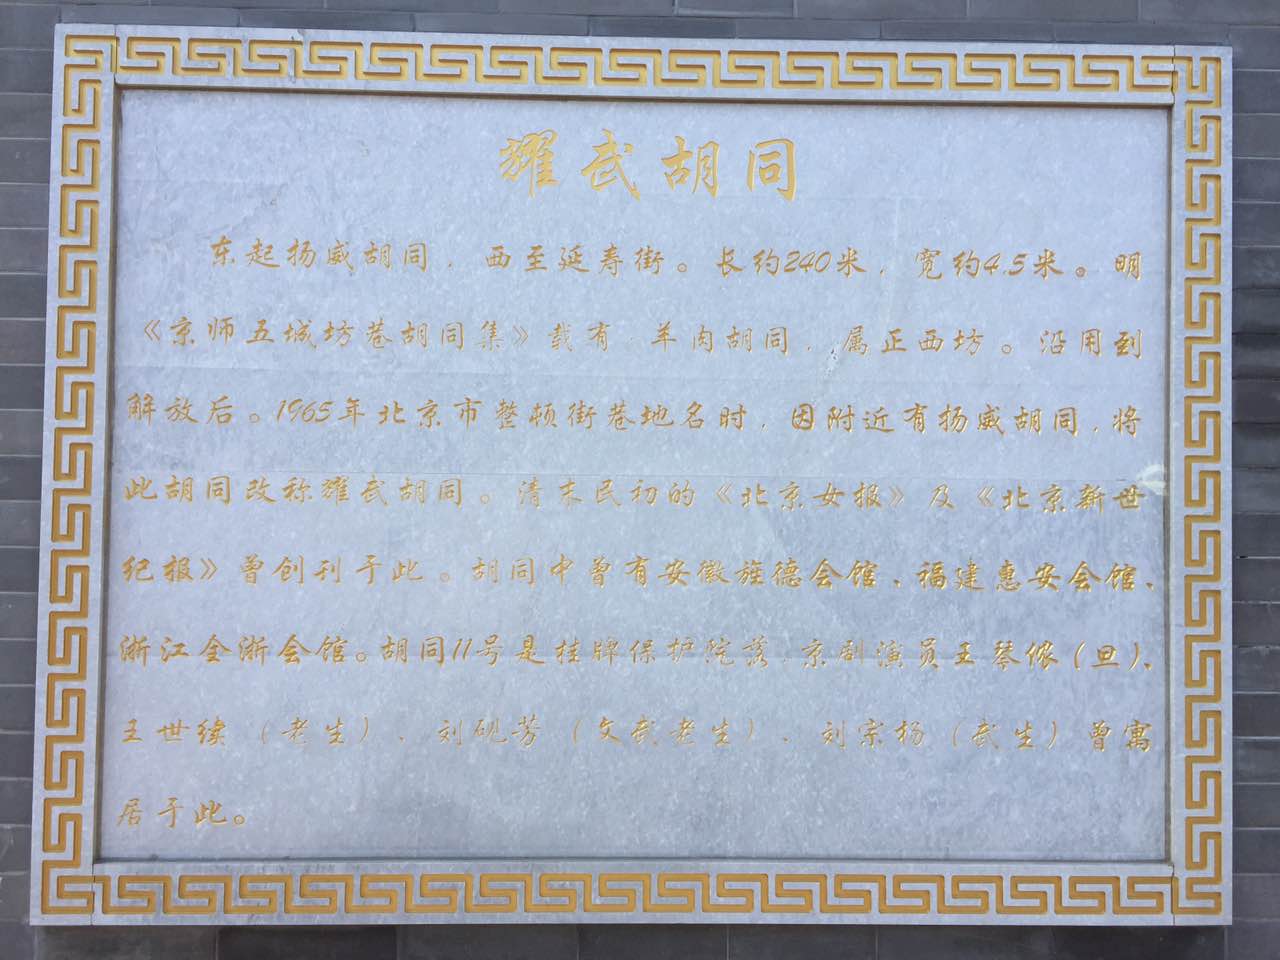 耀武胡同
东起扬威胡同，西至延寿街。长约240米，宽约4.5米。明
《京师五城坊巷胡同集》载有，羊肉胡同，属正西坊。沿用到
解放后。1965年北京市整顿街巷地名时，因附近有扬威胡同，将
此胡同改称耀武胡同。清末民初的《北京女报》及《北京新世
纪报》曾创刊于此。胡同中曾有安徽旌德会馆、福建惠安会馆、
浙江全浙会馆。胡同11号是挂牌保护院落，京剧演员王琴侬（旦）、
王世续（老生）、刘砚芳（文武老生）、刘宗杨（武生）曾寓
居于此。